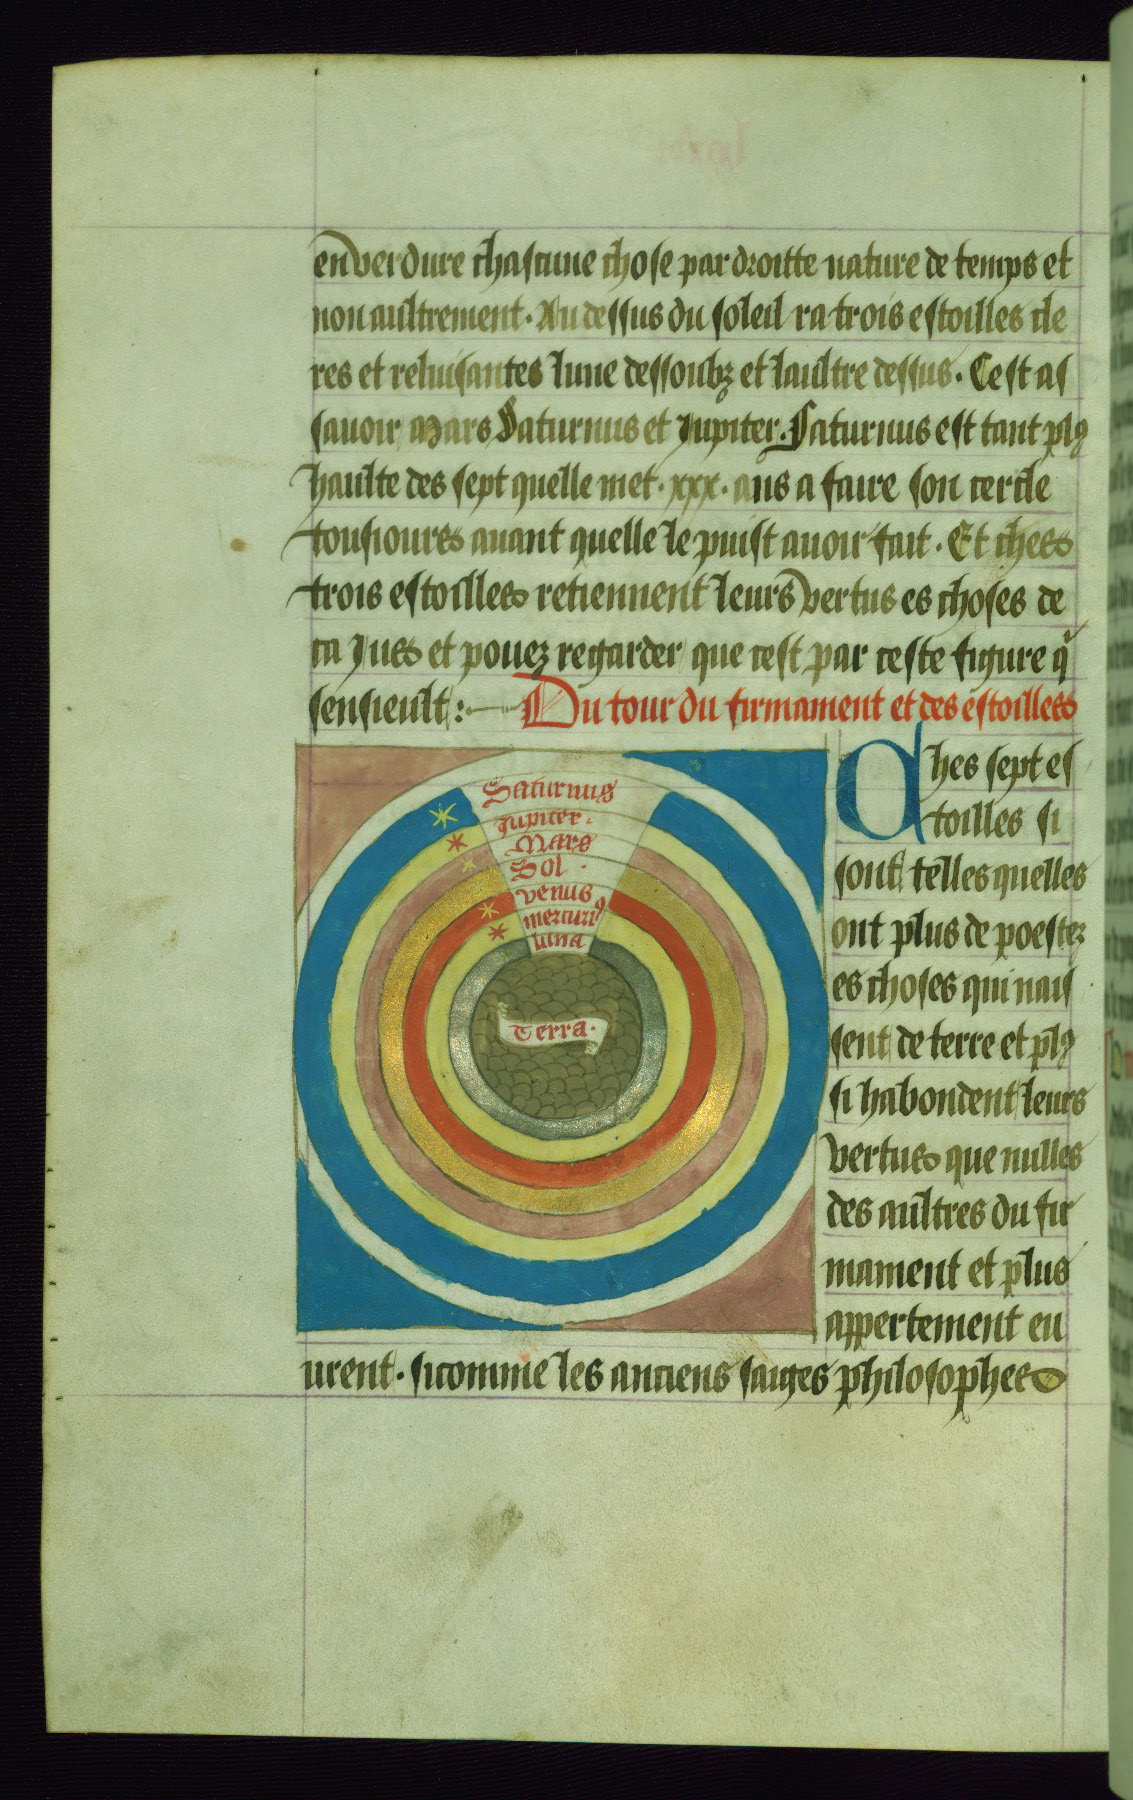 enverdure chascune chose par droitte nature de temps et
non aultrement. Au dessus du soleil ra trois estoilles cle
res et reluisantes lune dessoubz et laultre dessus. Cest as
sauoir Mars Saturnus et Jupiter. Saturnus est tant plꝯ
haulte des sept quelle met .xxx. ans a faire son cercle
tousiours auant quelle le puist auoir fait. Et ches
trois estoilles retiennent leurs vertus es choses de
ca Jus et pouez regarder que cest par ceste figure q̃
sensieult: Du tour du firmament et des estoilles
Saturnus
Jupiter.
Mars
Sol.
venus
mercuriꝯ
luna
Terra.
Ches sept es
toilles si
sont telles quelles
ont plus de poestez
es choses qui nais
sent de terre et plꝯ
si habondent leurs
vertus que nulles
des aultres du fir
mament et plus
appertement eu
urent. sicomme les anciens saiges philosophes